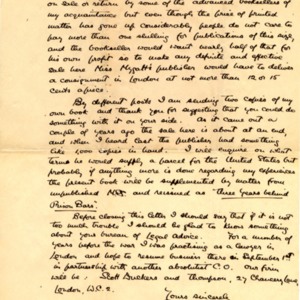 on sale or return by some of the advanced booksellers of
my acquaintance but even though the price of printed
matter has gone up considerably people do not care to
pay more than one shilling for publications of this size,
and the bookseller would want nearly half of that for
his own profit so as to make any definite and effective
sale here Miss publishers would have to deliver
a consignment in London at not more than 12 or 15
cents apiece.
By different posts I am sending two copies of my
own book and thank you for suggesting that you could do
something with it on your side. As it came out a
couple of years ago the sale here is about at an end,
and when I heard last the publisher had something
like 2000 copies in hand. I will enquire on what
terms he would supply a parcel for the United States but
probably if anything more is done regarding my experiences
the present book will be supplemented by matter from
unpublished MSS and reissued as "Three years behind
Prison Bars".
Before closing this letter I should say that if it is not
too much trouble I should be glad to know something
about your bureau of Legal Advice. For a number of
years before the war I was practising as a lawyer in
London and hope to resume business there in September 1st
in partnership with another absolutist C.O. Our firm
will be Scott Duckers and Thompson, 27 Chancery Lane
London, W.C.2.
Yours sincerely